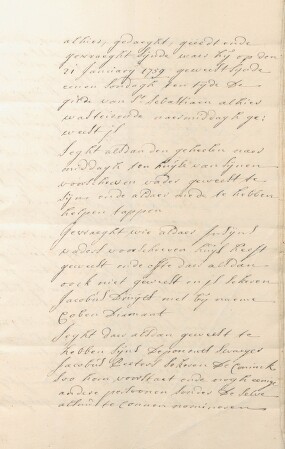 alhier, gedaeght, geeedt ende
gevraeght synde waer hij op den
21 January 1759 geweest synde
eenen sondagh ten tyde de
gilde van St Sebastiaen alhier
naermiddagh ge:
weest is
Seght alsdan den geheelen naer
middagh ten huyse van synen
voorschreven vader geweest te
syn ende aldaer mede te hebben
helpen tappen
Gevraeght wie aldaer syns
vaders voorschreven huys heeft
geweest ende ofte daer alsdan
oock niet geweest en is sekeren
Jacobus met bij naeme
Coben Diamant
Seght daer alsdan geweest te
hebben syns deponents swaeger
Jacobus Peeters sekeren De Coninck
soo hem voorstaet ende noch eenige
andere persoonen sonder de selve
alsnu te connen nomineren